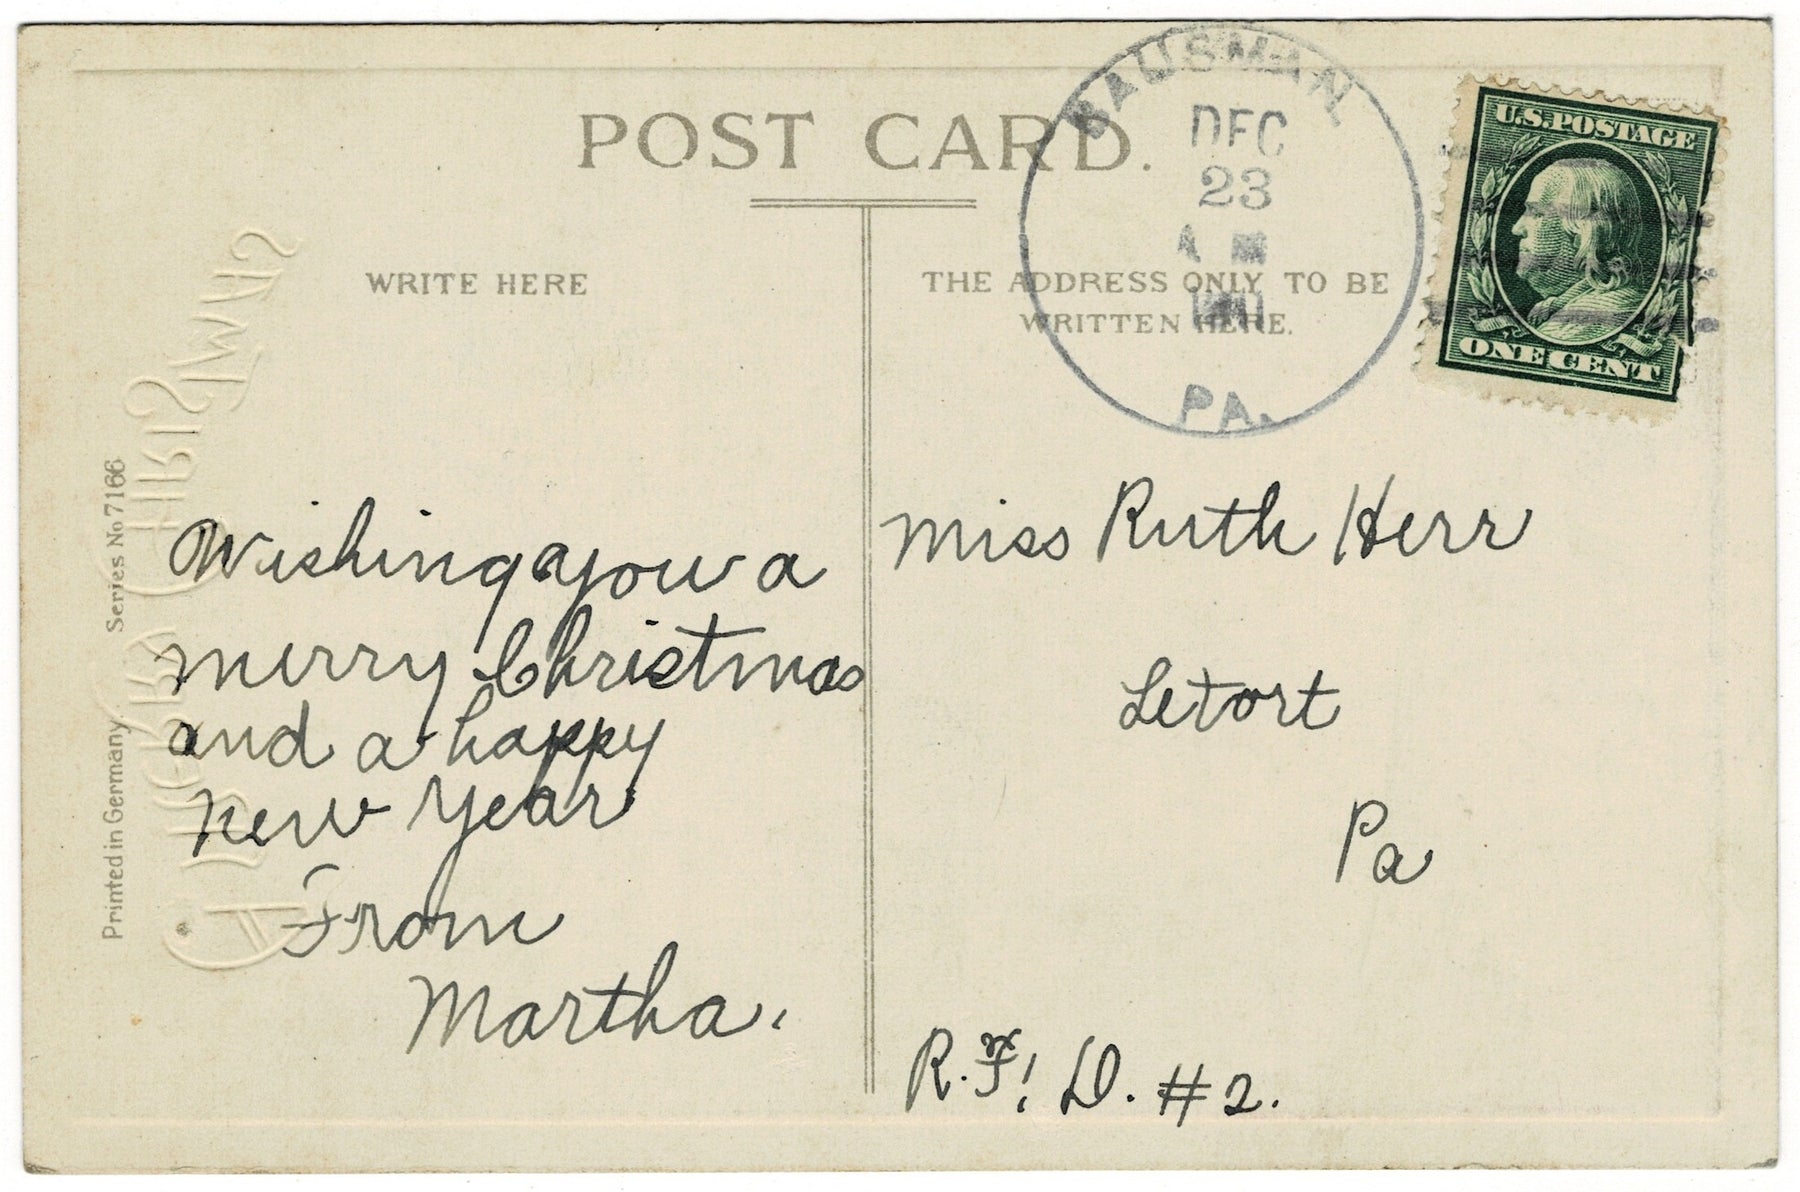 POST CARD.
WRITE HERE
THE ADDRESS ONLY TO BE
WRITTEN HERE.
BAUSMAN
DEC
23
A M
PA.
U.S. POSTAGE
ONE CENT
Printed in Germany.
Series No 7166
Wishing you a
merry Christmas
and a happy
New Year
From
Martha.
Miss Ruth Herr
Letort
Pa
R. F. D. #2.